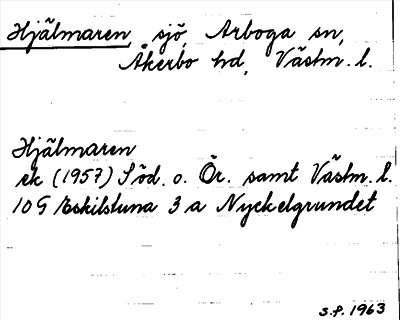 Hjälmaren, sjö, Arboga sn,
Åkerbo hd, Västm. l.
Hjälmaren
ek (1957) Söd. o. Ör. samt Västm. l.
10G Eskilstuna 3 a Nyckelgrundet
S.P. 1963